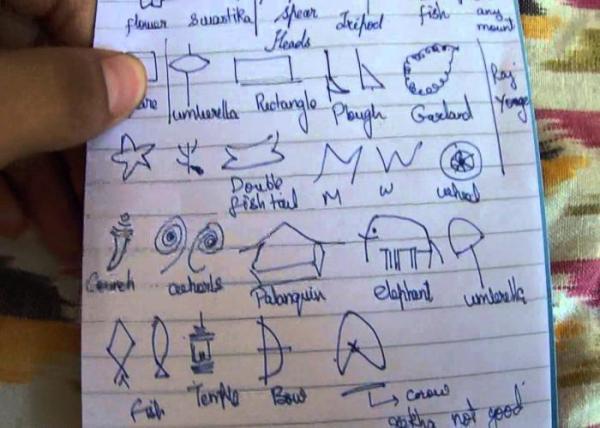 flower Swastika Spear Heads Tripod fish any mount
umbrella Rectangle Plough Garland Raj Yoga
Double fish tail M W wheel
Conch Palanquin elephant umbrella
Fish Temple Bow
not good